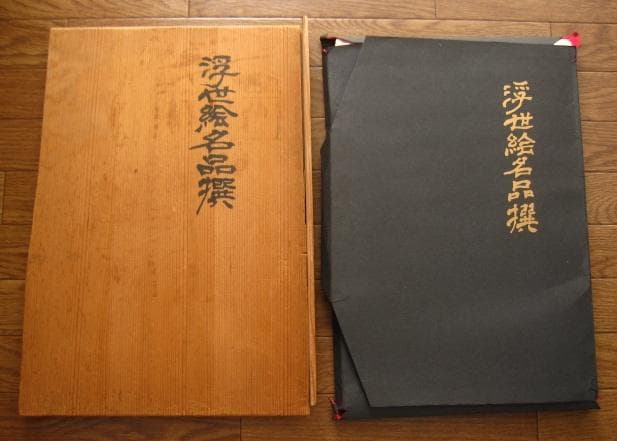 浮世絵名品撰
浮世絵名品撰